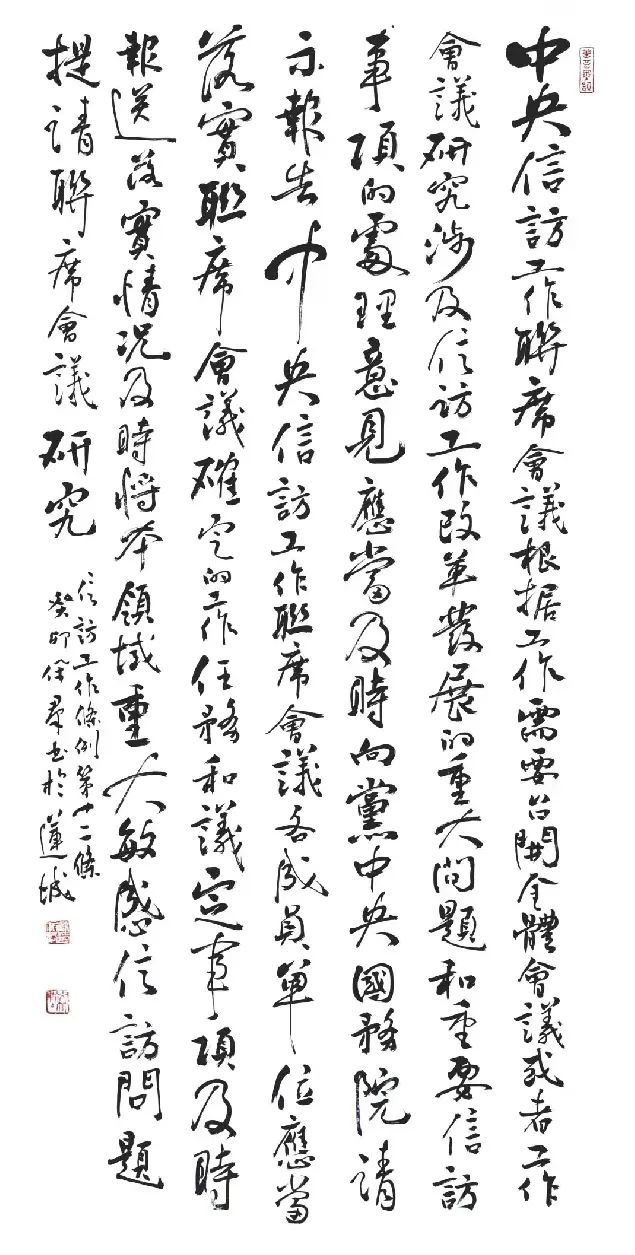 中央信訪工作聯席會議根据工作需要召開全體會議或者工作
會議研究涉及信訪工作改革發展的重大问題和重要信訪
事項的處理意見應當及時向黨中央國務院請
示報告中央信訪工作聯席會議各成員單位應當
落實聯席會議確定的工作任務和議定事項及時
報送落實情况及時将本領域重大敏感信訪問題
提請聯席會議研究
信訪工作條例第十二條
癸卯保群书於蓮城